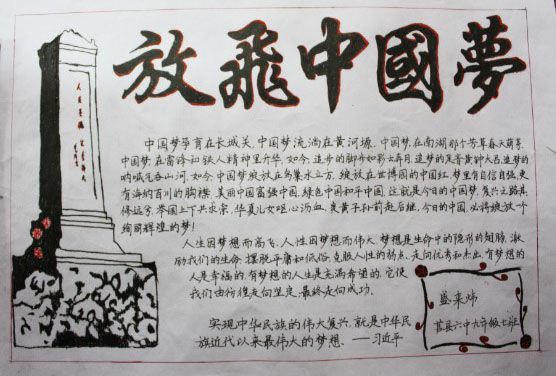 放飛中國夢
中国梦孕育在长城关,中国梦流淌在黄河壕.中国梦,在南湖那个芳草春天萌芽.
中国梦,在雷锋和铁人精神里升华.如今,的脚步如影,追梦的足音黄钟大吕,追梦的
呐喊气吞山河.如今,中国梦绽放在鸟巢水立方,绽放在世博园的中国红.梦里有自信自强,更
有海纳百川的胸襟.美丽中国富强中国.绿色中国和平中国.这,就是今日的中国梦.复兴之路,其
修远兮.举国上下共求索,华夏儿女呕心沥血,炎黄子孙前赴后继.今日的中国,必将绽放一个
绚丽辉煌的梦!
人生因梦想而高飞,人性因梦想而伟大.梦想是生命中的隐形的翅膀,激
励我们的生命,摆脱平庸和低俗,克服人性的弱点,走向优秀和杰出.有梦想的
人是幸福的,有梦想的人生是充满希望的,它使
我们由彷徨走向坚定,最终走向成功.
实现中华民族的伟大复兴,就是中华民
族近代以来最伟大的梦想、——习近平
盛来炜
莒县六中九年级七班